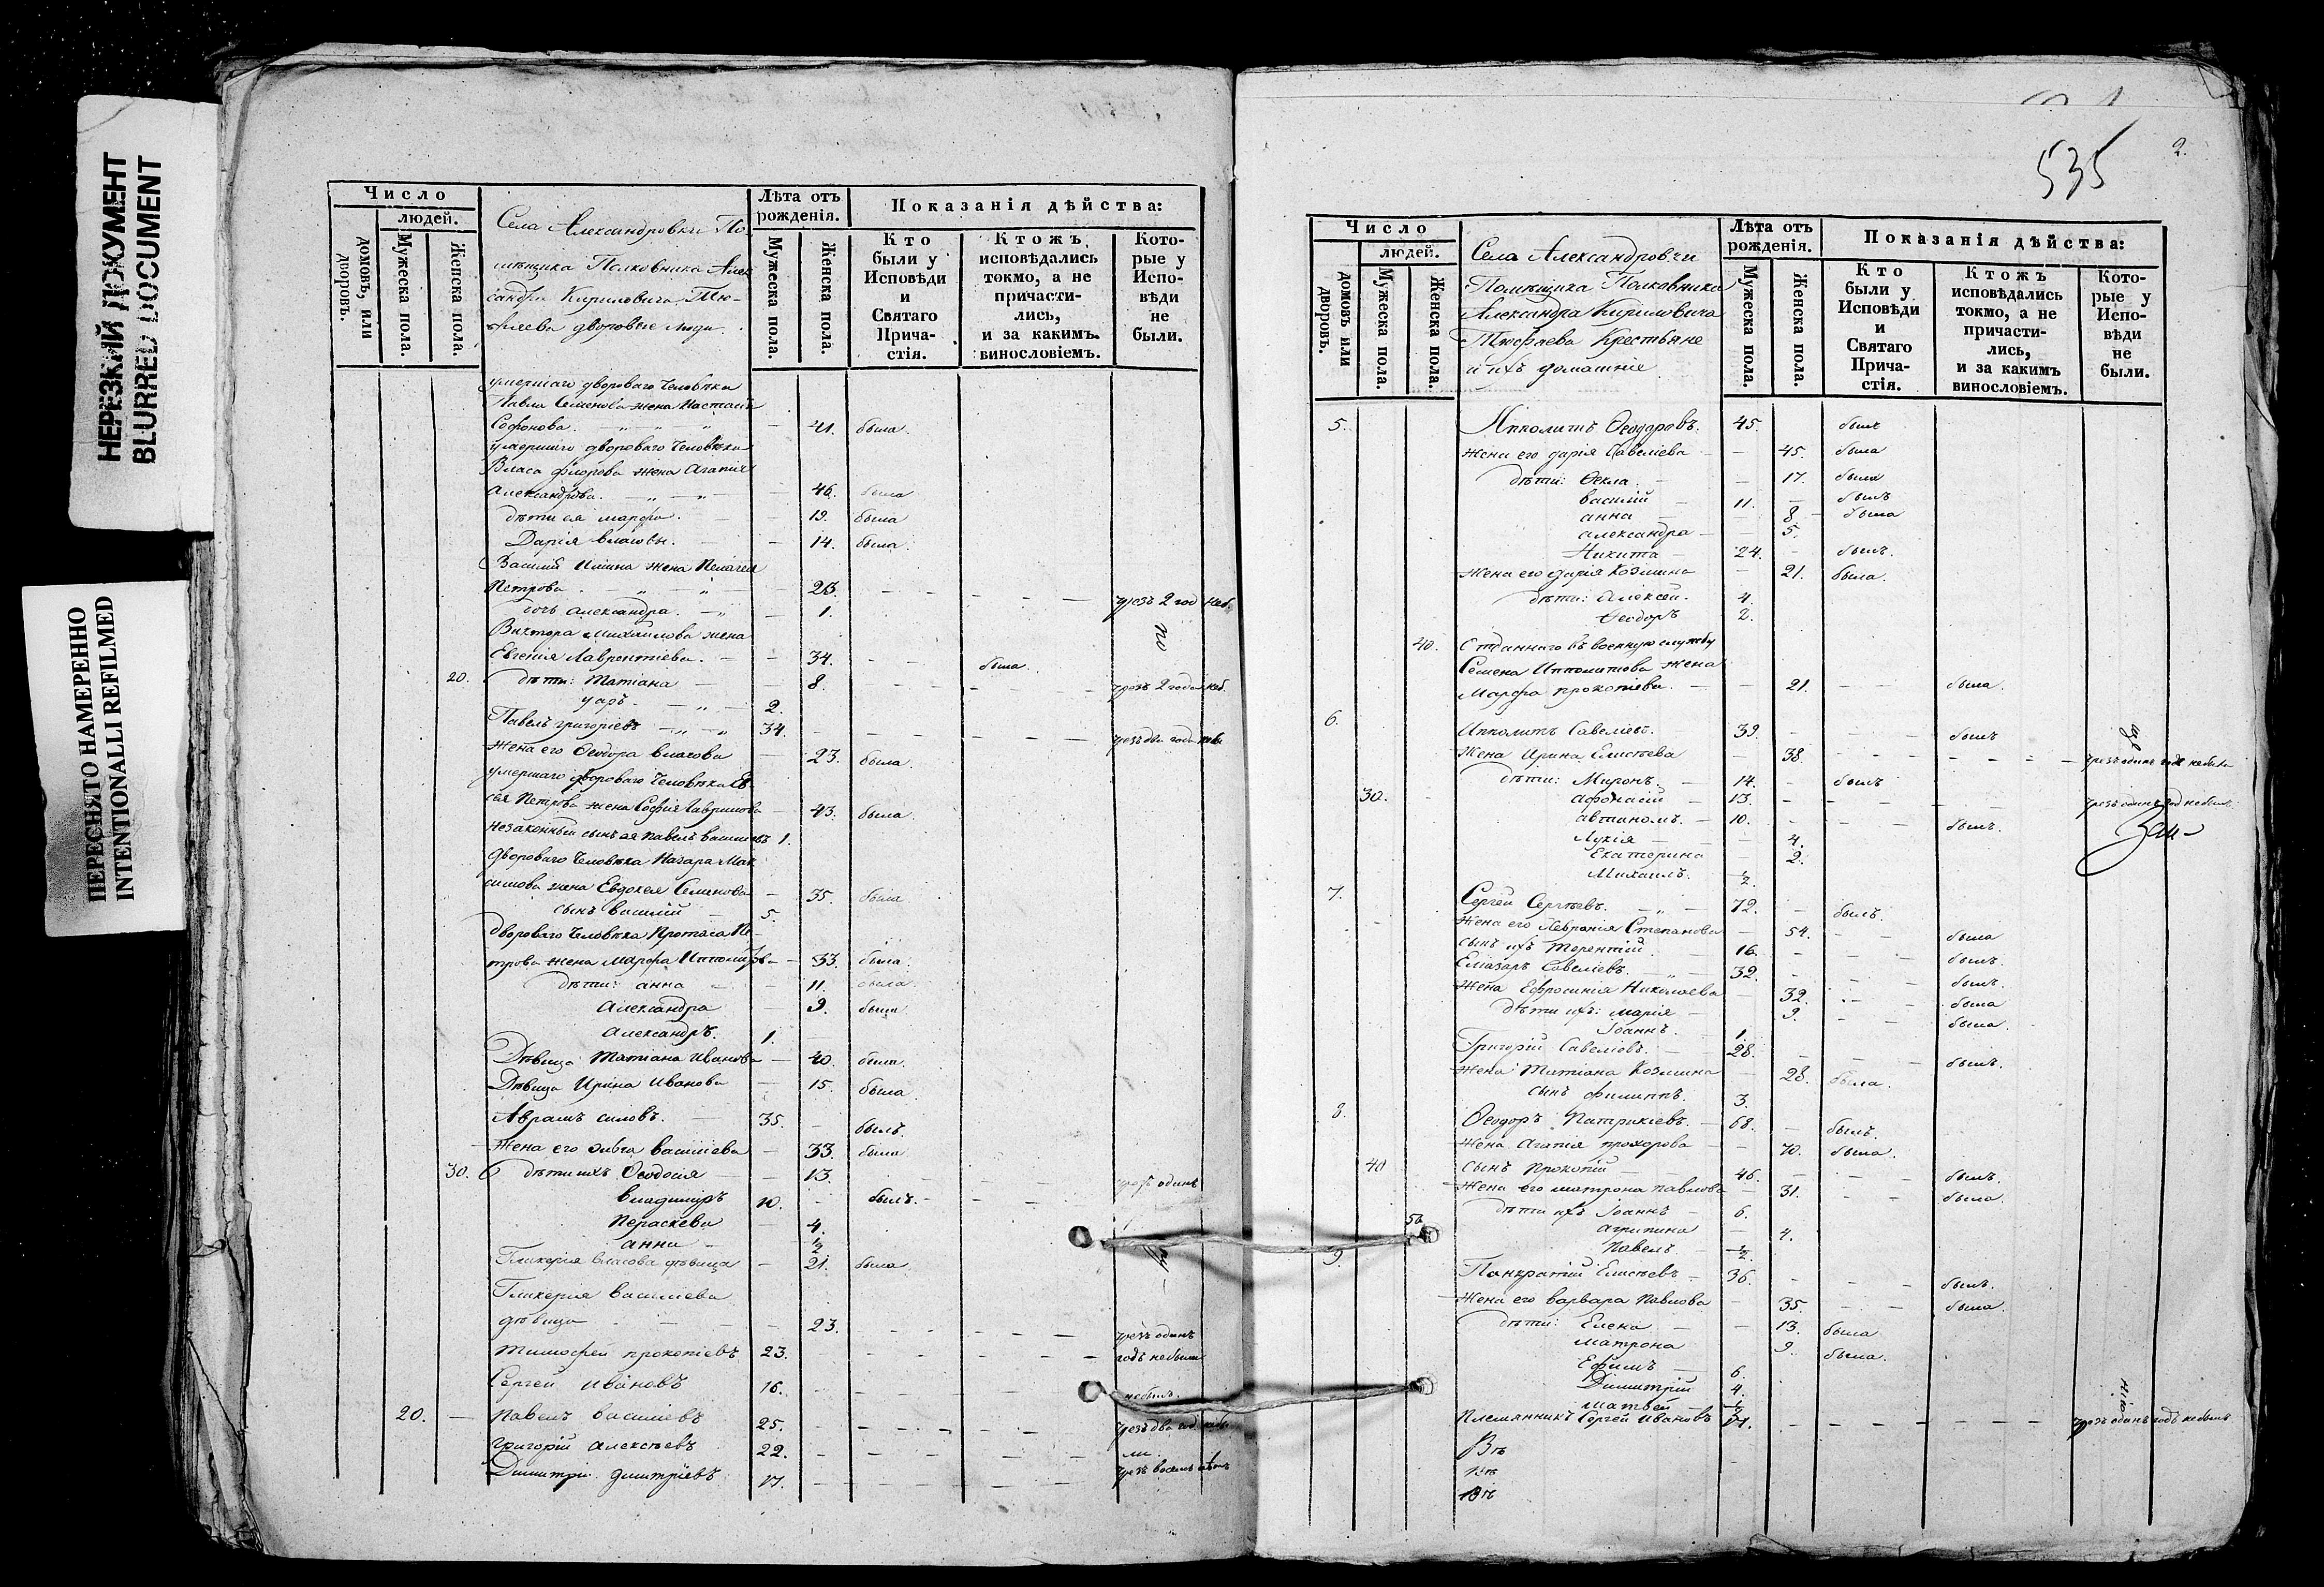 НЕРЕЗКИЙ ДОКУМЕНТ
BLURRED DOCUMENT
ПЕРЕСНЯТО НАМЕРЕННО
INTENTIONALLI REFILMED
Число
людей.
домовъ, или дворовъ.
Мужеска пола.
Женска пола.
Села Александровки По-
мѣщика Полковника Алек
сандра Кириловича Тю-
фяева дворовые люди
Лѣта отъ рожденія.
Мужеска пола.
Женска пола.
Показанія дѣйства:
Кто были у Исповѣди и Святаго Прича-стія.
Ктожъ исповѣдались токмо, а не причасти-лись, и за какимъ винословіемъ.
Кото-рые у Испо-вѣди не были.
умершаго двороваго человѣка
Павла Семенова жена Настасья
Софонова. — 41. была.
умершаго двороваго человѣка
Власа жена Агапия
Александрова. — 46. была
дѣти ея марфа. — 19. была
Дарія власовы. — 14. была.
Василия жена Пелагея
Петрова. — 23. чрезъ 2 год неб.
дочь Александра. — 1.
Виктора Михаилова жена
Евгения Лаврентиева. — 34. была.
20. дѣти: Татиана — 8. чрезъ 2 года неб.
2.
Павелъ григориевъ 34. чрезъ два года
жена его Ѳеодора власова — 23. была.
умершаго двороваго человѣка Ев
сея Петрова жена София Гаврилова — 43. была.
незаконный сынъ ея павелъ василиевъ 1.
двороваго человѣка Назара Мак
симова жена Евдокея Семенова — 35. была
сынъ василий — 5.
двороваго человѣка Протаса Пе-
трова жена марфа Ипполитова — 33. была.
дѣти: анна — 11. была.
Александра — 9. была
Александръ. 1.
Дѣвица Татиана Иванова — 40. была.
Дѣвица Ирина Иванова — 15. была.
Аврамъ силовъ. — 35. былъ.
жена его олга василиева — 33. была
30. 6 дѣти ихъ Ѳеодосия — 13. чрезъ одинъ
владимиръ 10. былъ.
Пераскева — 4.
анна — ½
Гликерия власова дѣвица — 21. была.
Гликерия василиева
дѣвица — 23. чрезъ одинъ
тимофей прокопиевъ 23. годъ небыли
Сергей ивановъ 16. небылъ.
20. — павелъ василиевъ 25. чрезъ два год
григорий алексеевъ 22. ли
Димитри димитриевъ 17. чрезъ восемь лѣтъ
535
2.
Число
людей.
домовъ или дворовъ.
Мужеска пола.
Женска пола.
Села Александровки
Помѣщика Полковника
Александра Кириловича
Тюфяева Крестьяне
и ихъ домашние
Лѣта отъ рожденія.
Мужеска пола.
Женска пола.
Показанія дѣйства:
Кто были у Исповѣди и Святаго Прича-стія.
Ктожъ исповѣдались токмо, а не причасти-лись, и за какимъ винословіемъ.
Кото-рые у Испо-вѣди не были.
5. Ипполитъ Ѳеодоровъ. 45. былъ
жена его дария Савелиева — 45. была
дѣти: Ѳекла. — 17. была
василий — 11. былъ
анна — 8 была
александра — 5.
Никита — 24. былъ.
жена его дария Козмина — 21. была.
дѣти: Алексей. 4.
Ѳеодоръ 2.
40. Отданнаго въ военную службу
Семена Ипполитова жена
Марфа прокопиева. — 21. была.
6. Ипполитъ Савелиевъ. 39. былъ
Жена Ирина Елисеева — 38. чрезъ одинъ годъ небыла
дѣти: Миронъ. — 14. былъ
30. афонасий — 13. чрезъ одинъ год небылъ.
автаномъ. — 10. былъ.
Лукия — 4.
Екатерина — 2.
Михаилъ. ½
7. Сергей Сергѣевъ. 72. былъ.
жена его Феврония Степанова — 54. была
сынъ ихъ Терентий. 16. былъ.
Елиазаръ Савелиевъ. 32. былъ.
жена Ефросиния Николаева — 32. была
дѣти ихъ: мария — 9. была.
Іоаннъ. — 1.
Григорий Савелиевъ. 28. былъ.
жена Татиана Козмина — 28. была.
сынъ филиппъ. 3.
8. Ѳеодоръ Патрикиевъ. 68. былъ.
жена Агапия прохорова — 70. была.
40 сынъ Прокопий — 46. былъ.
жена его матрона павлова — 31. была.
дѣти ихъ Іоаннъ — 6.
50 агрипина — 4.
Павелъ. — ½
9. Панкратий Елисеевъ — 36. былъ.
жена его варвара Павлова — 35. была.
дѣти: Елена — 13. была
матрона — 9. была.
Ефимъ — 6.
Димитрий 4.
матвей — ½
племянникъ Сергей Ивановъ 21. чрезъ одинъ годъ небылъ
Въ
Въ
Въ